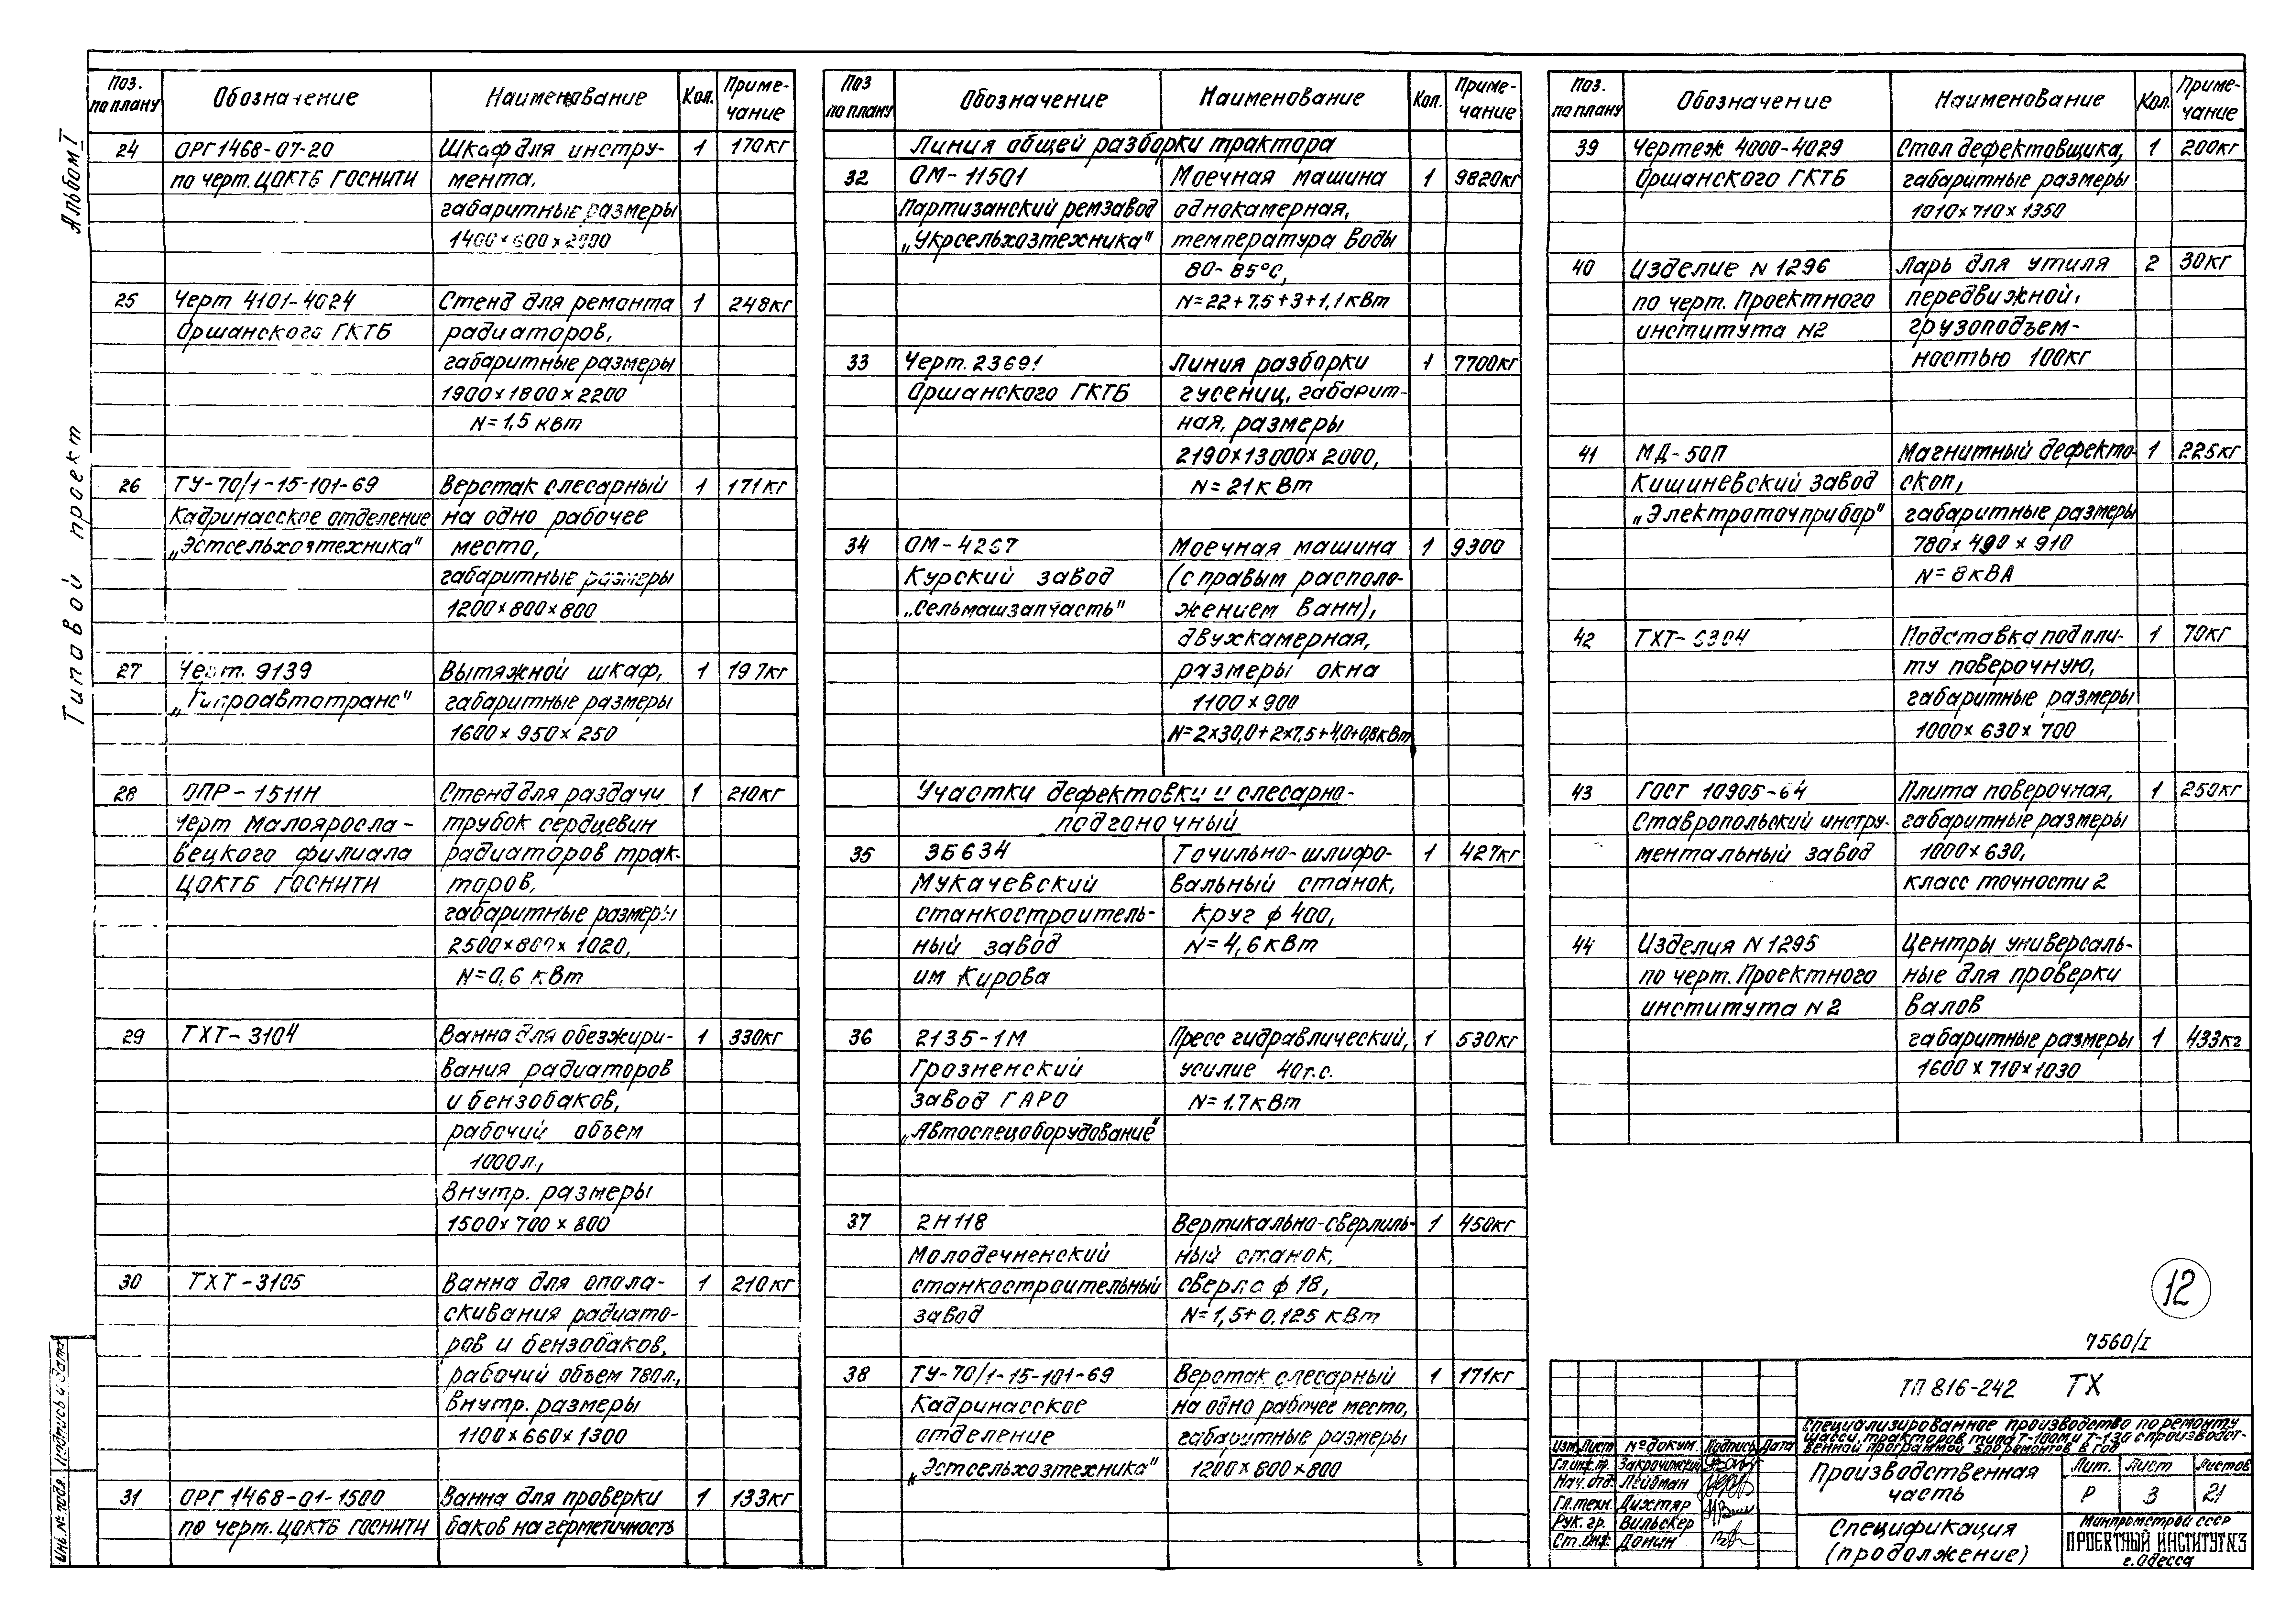 Альбом I
Типовой проект
Инв. № подл. Подпись и дата
Поз. по плану Обозначение Наименование Кол. Приме-
чание
24 ОРГ 1468-07-20 Шкаф для инстру- 1 170кг
по черт. ЦОКТБ ГОСНИТИ мента,
габаритные размеры
1400×600×2000
25 Черт 4101-4024 Стенд для ремонта 1 248кг
Оршанского ГКТБ радиаторов,
габаритные размеры
1900×1800×2200
N=1,5 кВт
26 ТУ-70/1-15-101-69 Верстак слесарный 1 171кг
Кадринасское отделение на одно рабочее
„Эстсельхозтехника" место,
габаритные размеры
1200×800×800
27 Черт. 9139 Вытяжной шкаф, 1 197кг
„Гипроавтотранс" габаритные размеры
1600×950×250
28 ОПР-1511Н Стенд для раздачи 1 210кг
Черт Малояросла- трубок сердцевин
вецкого филиала радиаторов трак-
ЦОКТБ ГОСНИТИ торов,
габаритные размеры
2500×800×1020,
N=0,6 кВт
29 ТХТ-3104 Ванна для обезжири- 1 330кг
вания радиаторов
и бензобаков,
рабочий объем
1000л.,
Внутр. размеры
1500×700×800
30 ТХТ-3105 Ванна для опола- 1 210кг
скивания радиато-
ров и бензобаков,
рабочий объем 780л.,
Внутр. размеры
1100×660×1300
31 ОРГ 1468-01-1500 Ванна для проверки 1 133кг
по черт. ЦОКТБ ГОСНИТИ баков на герметичность
Поз по плану Обозначение Наименование Кол. Приме-
чание
Линия общей разборки трактора
32 ОМ-11501 Моечная машина 1 9820кг
Партизанский ремзавод однокамерная,
„Укрсельхозтехника" температура воды
80-85°С,
N=22+7,5+3+1,1кВт
33 Черт. 23691 Линия разборки 1 7700кг
Оршанского ГКТБ гусениц, габарит-
ная, размеры
2190×13000×2000,
N=21кВт
34 ОМ-4267 Моечная машина 1 9300
Курский завод (с правым располо-
„Сельмашзапчасть" жением ванн),
двухкамерная,
размеры окна
1100×900
N=2×30,0+2×7,5+4,0+0,8кВт
Участки дефектовки и слесарно-
подгоночный
35 3Б634 Точильно-шлифо- 1 427кг
Мукачевский вальный станок,
станкостроитель- круг ф 400,
ный завод N=4,6кВт
им Кирова
36 2135-1М Пресс гидравлический, 1 530кг
Грозненский усилие 40т.с.
завод ГАРО N=1.7кВт
„Автоспецоборудование"
37 2Н118 Вертикально-сверлиль- 1 450кг
Молодечненский ный станок,
станкостроительный сверла ф 18,
завод N=1,5+0,125 кВт
38 ТУ-70/1-15-101-69 Верстак слесарный 1 171кг
Кадринасское на одно рабочее место,
отделение габаритные размеры
„Эстсельхозтехника" 1200×800×800
Поз. по плану Обозначение Наименование Кол. Приме-
чание
39 Чертеж 4000-4029 Стол дефектовщика, 1 200кг
Оршанского ГКТБ габаритные размеры
1010×710×1350
40 Изделие N 1296 Ларь для утиля 2 30кг
по черт. Проектного передвижной,
института N2 грузоподъем-
ностью 100кг
41 МД-50П Магнитный дефекто- 1 225кг
Кишиневский завод скоп,
„Электроточприбор" габаритные размеры
780×490×910
N=8кВА
42 ТХТ-6304 Подставка под пли- 1 70кг
ту поверочную,
габаритные размеры
1000×630×700
43 ГОСТ 10905-64 Плита поверочная, 1 250кг
Ставропольский инстру- габаритные размеры
ментальный завод 1000×630,
класс точности 2
44 Изделия N 1295 Центры универсаль-
по черт. Проектного ные для проверки
института N2 валов
габаритные размеры 1 433кг
1600×710×1030
12
7560/I
ТП 816-242 ТХ
Специализированное производство по ремонту
шасси тракторов типа Т-100М и Т-130 с производст-
венной программой 500 ремонтов в год
Изм. Лист № докум. Подпись Дата
Гл.инж.пр. Закрочимский
Нач. отд. Лейбман
Гл.техн. Дихтяр
Рук. гр. Вильскер
Ст. инж. Донин
Производственная
часть
Лит. Лист Листов
Р 3 21
Спецификация
(продолжение)
Минпромстрой СССР
ПРОЕКТНЫЙ ИНСТИТУТ №3
г. Одесса